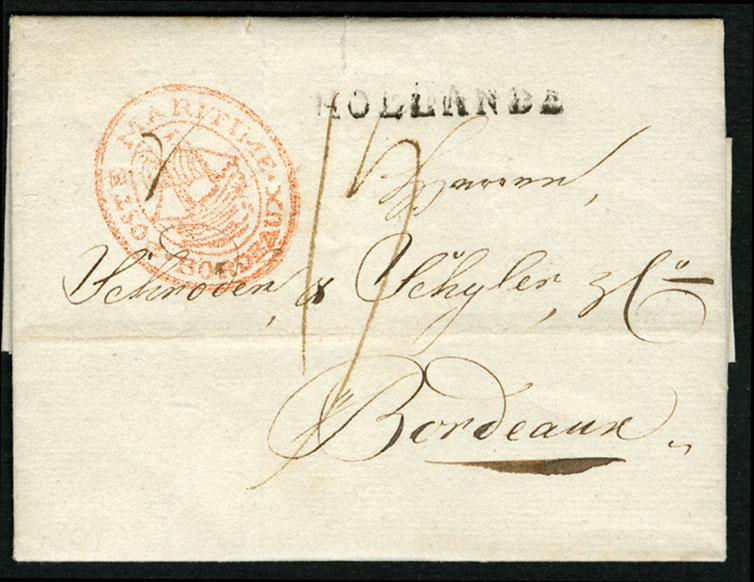 HOLLANDE
POSTE MARITIME. BORDEAUX
Herren,
Schroder, & Schyler, & C°
Bordeaux